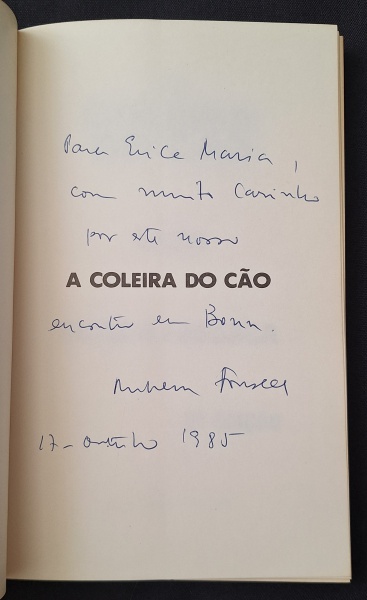 Para Erice Maria,
com muito Carinho
por este nosso
A COLEIRA DO CÃO
encontro em Bonn.
Rubem Fonseca
17 - outubro 1985